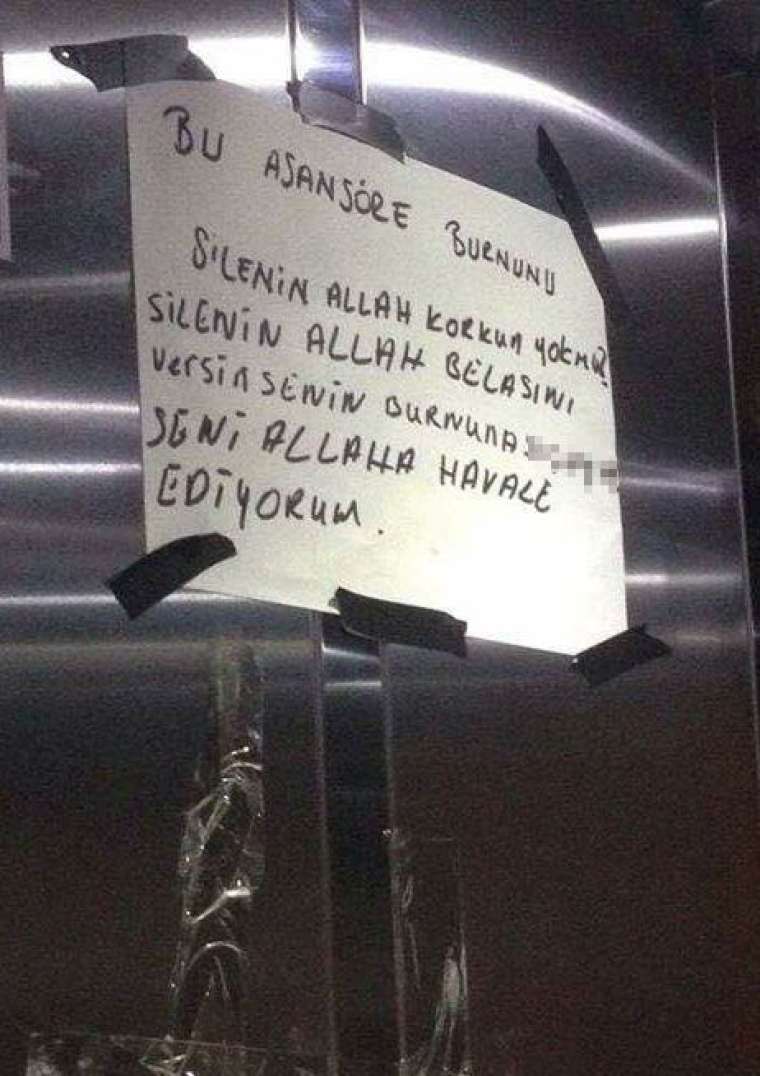 BU ASANSÖRE BURNUNU
SİLENİN ALLAH KORKUn YOKMU?
SİLENİN ALLAH BELASINI
VERSİn SENİN BURNUNA
SENİ ALLAHA HAVALE
EDİYORUM.